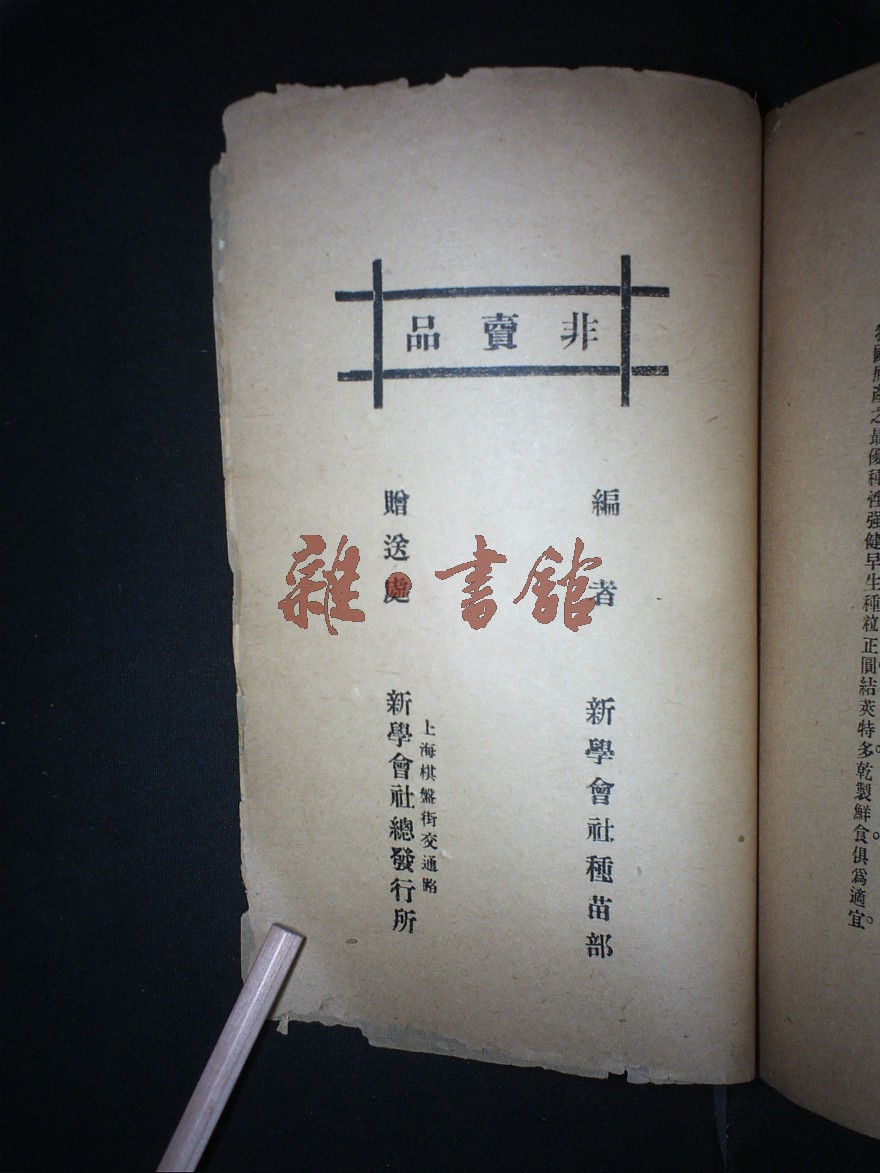 非賣品
編者 新學會社種苗部
贈送處 上海棋盤街交通路
新學會社總發行所
雜·書館
國原產之最優種性強健早生種粒正圓結莢特多。乾製鮮食俱爲適宜。